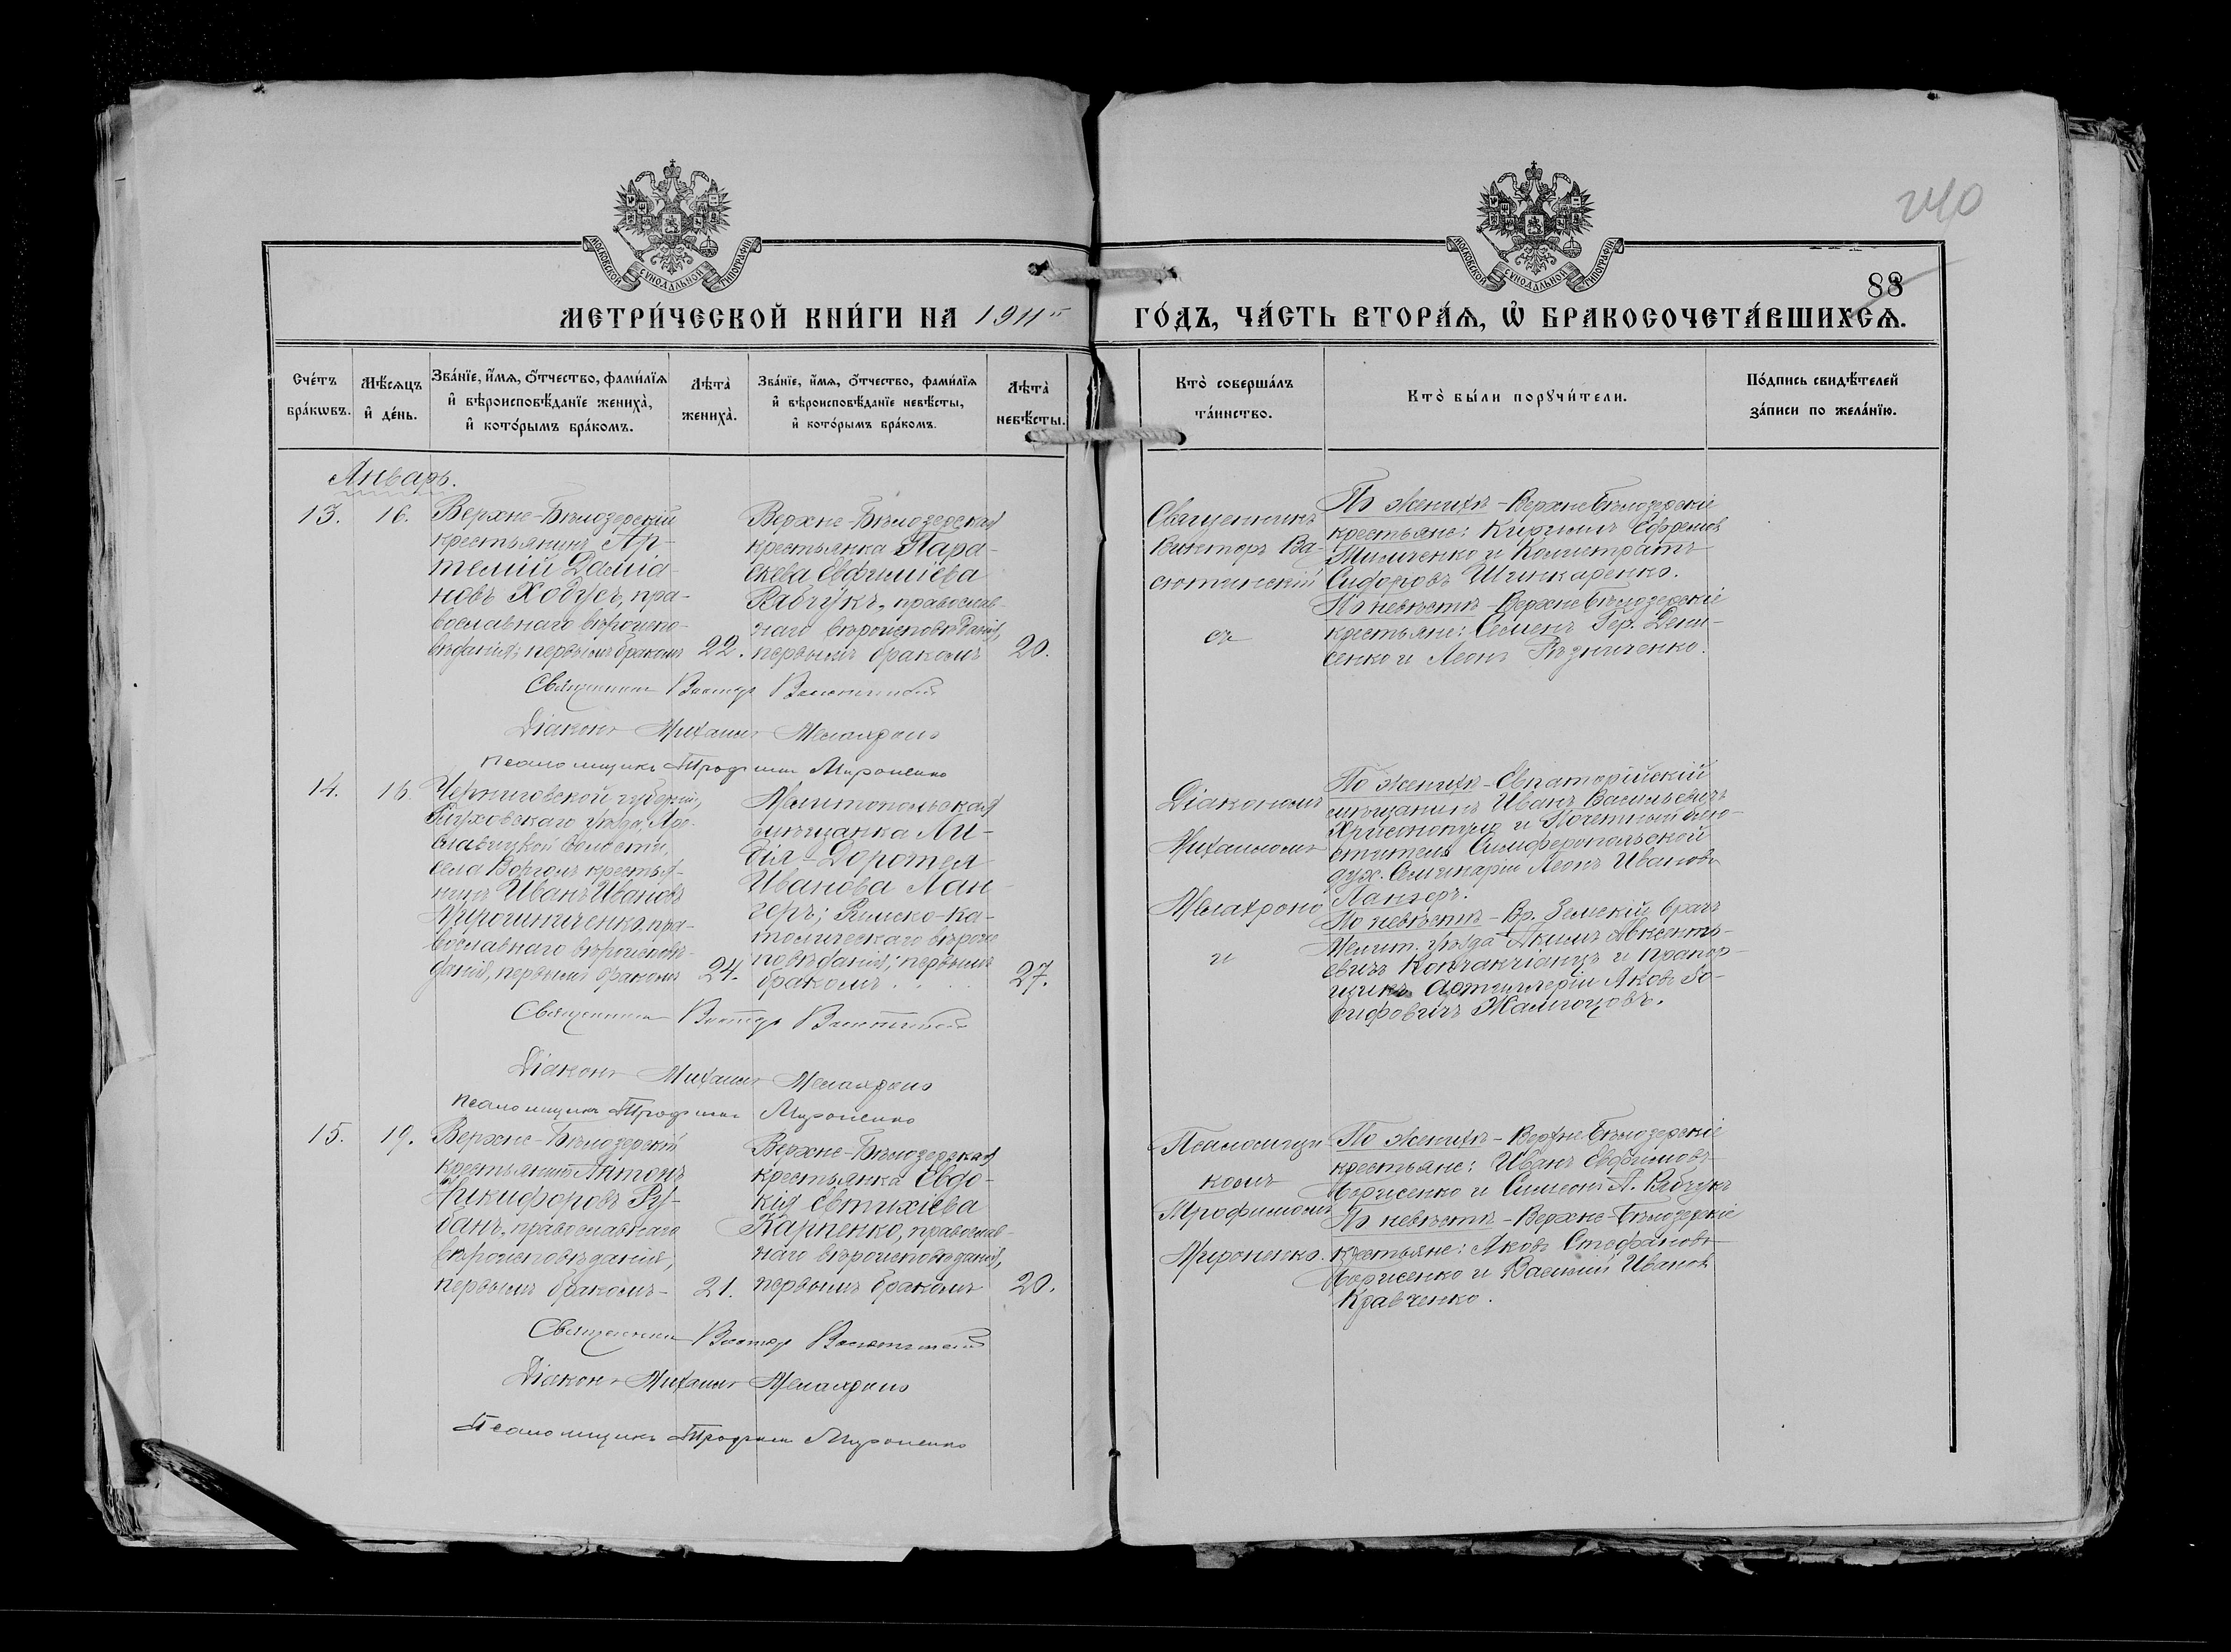 240
88
МОСКОВСКОЙ СѴНОДАЛЬНОЙ ТИПОГРАФІИ
МОСКОВСКОЙ СѴНОДАЛЬНОЙ ТИПОГРАФІИ
МЕТРИ́ЧЕСКОЙ КНИ́ГИ НА 1911й
ГО́ДЪ, ЧА́СТЬ ВТОРА́Ѧ, Ѡ҆ БРАКОСОЧЕТА́ВШИХСѦ.
Сче́тъ
бра́кѡвъ.
Мѣ́сѧцъ
и҆ де́нь.
Зва́нїе, и҆́мѧ, ѻ҆́тчество, фами́лїѧ
и҆ вѣроисповѣ́данїе жениха̀,
и҆ кото́рымъ бра́комъ.
Лѣта̀
жениха̀.
Зва́нїе, и҆́мѧ, ѻ҆́тчество, фами́лїѧ
и҆ вѣроисповѣ́данїе невѣ́сты,
и҆ кото́рымъ бра́комъ.
Лѣта̀
невѣ́сты.
Кто̀ соверша́лъ
та́инство.
Кто̀ бы́ли порꙋчи́тели.
По́дпись свидѣ́телей
за́писи по жела́нїю.
Январь.
13.
16.
Верхне-Бѣлозерскій
крестьянинъ Ар-
темій Даміа-
новъ Хобусъ, пра-
вославнаго вѣроиспо-
вѣданія, первымъ бракомъ
22.
Верхне-Бѣлозерская
крестьянка Пара-
скева Евфиміева
Рябчукъ, православ-
наго вѣроисповѣданія,
первымъ бракомъ
20.
Священникъ
Викторъ Ва-
сютинскій
съ
По женихѣ - Верхнебѣлозерскіе
крестьяне: Кириллъ Ефремовъ
Тимченко и Каллистратъ
Сидоровъ Шинкаренко.
По невѣстѣ - Верхнебѣлозерскіе
крестьяне: Семенъ Гер. Дени-
сенко и Леонъ Рѣзниченко.
Священникъ Викторъ Васютинскій
Діаконъ Михаилъ
псаломщикъ Трофимъ Мироненко
14.
16
Черниговской губерніи,
Глуховскаго уѣзда,
волости,
села Воргола крестья-
нинъ Иванъ Ивановъ
пра-
вославнаго вѣроисповѣ-
данія, первымъ бракомъ
24.
Мелитопольская
мѣщанка Ли-
дія-Доротея
Иванова Лан-
геръ; Римско-ка-
толическаго вѣроис
повѣданія; первымъ
бракомъ. . .
27.
Діакономъ
Михаиломъ
и
По женихѣ - Евпаторійскій
мѣщанинъ Иванъ Васильевичъ
и Почетный блю-
ститель Симферопольской
дух. Семинаріи Леонъ Ивановъ
Лангеръ.
По невѣстѣ - Вр. Земскій врачъ
Мелит. уѣзда Акимъ Авксенть-
евичъ и прапор-
щикъ Артиллеріи Яковъ Іо-
сифовичъ
Священникъ Викторъ Васютинскій
Діаконъ Михаилъ
псаломщикъ Трофимъ Мироненко
15.
19.
Верхне-Бѣлозерскій
крестьянинъ Антонъ
Никифоровъ Ру-
банъ, православнаго
вѣроисповѣданія,
первымъ бракомъ-
21.
Верхне-Бѣлозерская
крестьянка Евдо-
кія Евтихіева
Карпенко, православ-
наго вѣроисповѣданія,
первымъ бракомъ
20.
Псаломщи-
комъ
Трофимомъ
Мироненко.
По женихѣ - Верхнебѣлозерскіе
крестьяне: Иванъ Евфимовъ
Борисенко и Симеонъ А. Рябчукъ
По невѣстѣ - Верхне-Бѣлозерскіе
крестьяне: Яковъ Стефановъ
Борисенко и Василій Ивановъ
Кравченко.
Священникъ Викторъ Васютинскій
Діаконъ Михаилъ
Псаломщикъ Трофимъ Мироненко